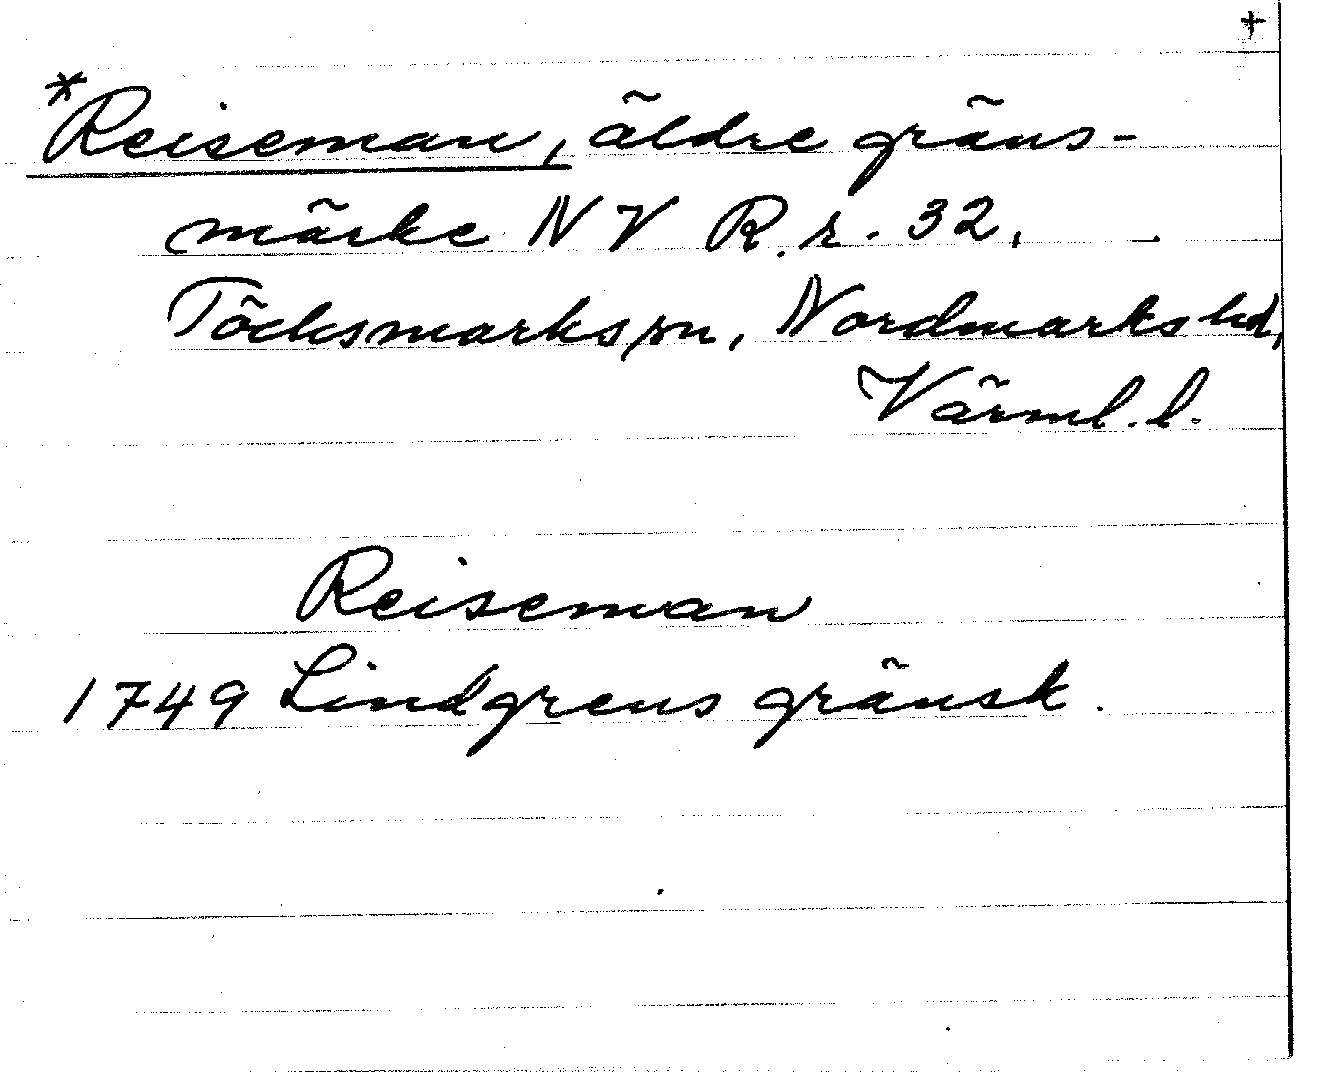 +
*Reiseman, äldre gräns-
märke NV R.r. 32,
Töcksmarks sn, Nordmarks hd,
Värml. l.
Reiseman
1749 Lindgrens gränsk.